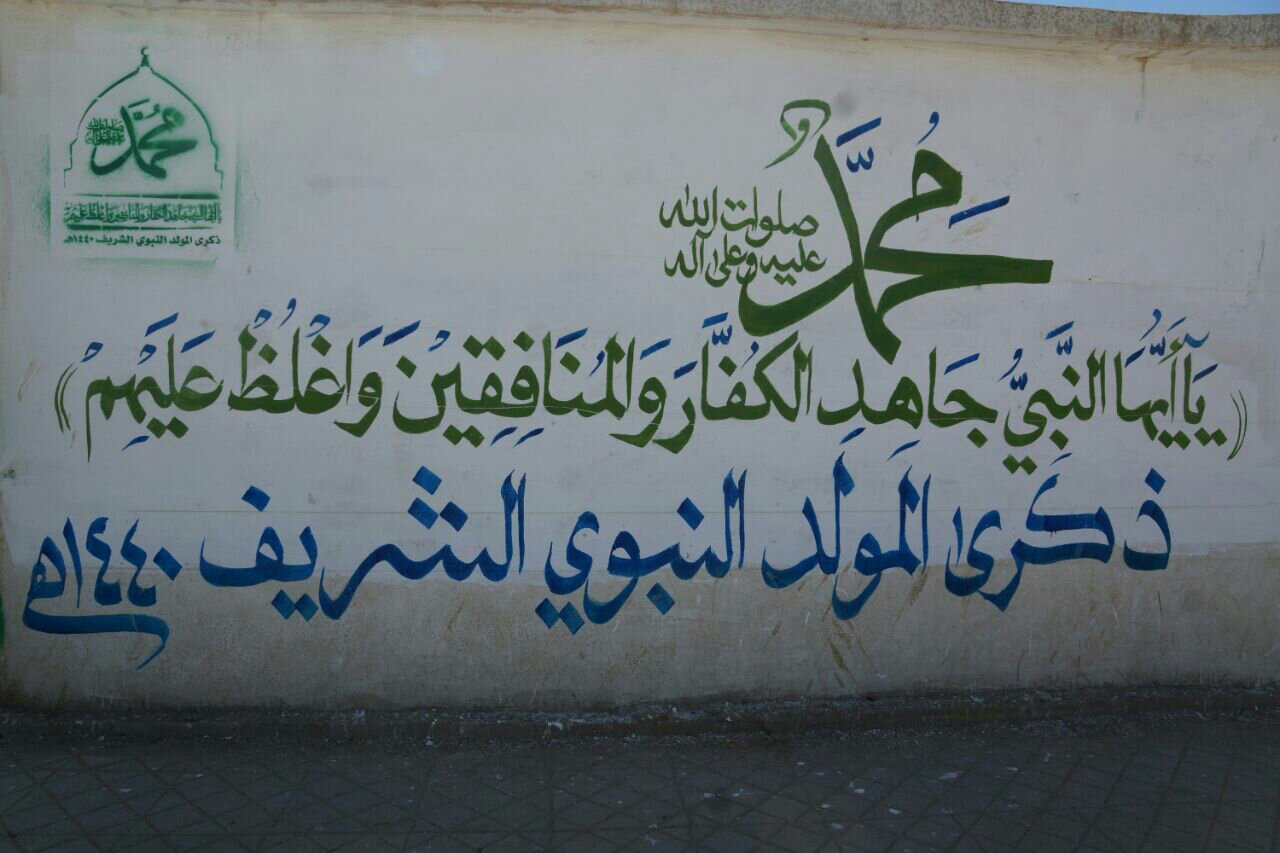 محمد
صلوات الله
عليه وعلى آله
﴿يَاأَيُّهَا النَّبِيُّ جَاهِدِ الْكُفَّارَ وَالْمُنَافِقِينَ وَاغْلُظْ عَلَيْهِمْ﴾
ذكرى المولد النبوي الشريف ١٤٤٠هـ
محمد
صلوات الله
عليه وعلى آله
ياأيها النبي جاهد الكفار والمنافقين واغلظ عليهم
ذكرى المولد النبوي الشريف ١٤٤٠هـ